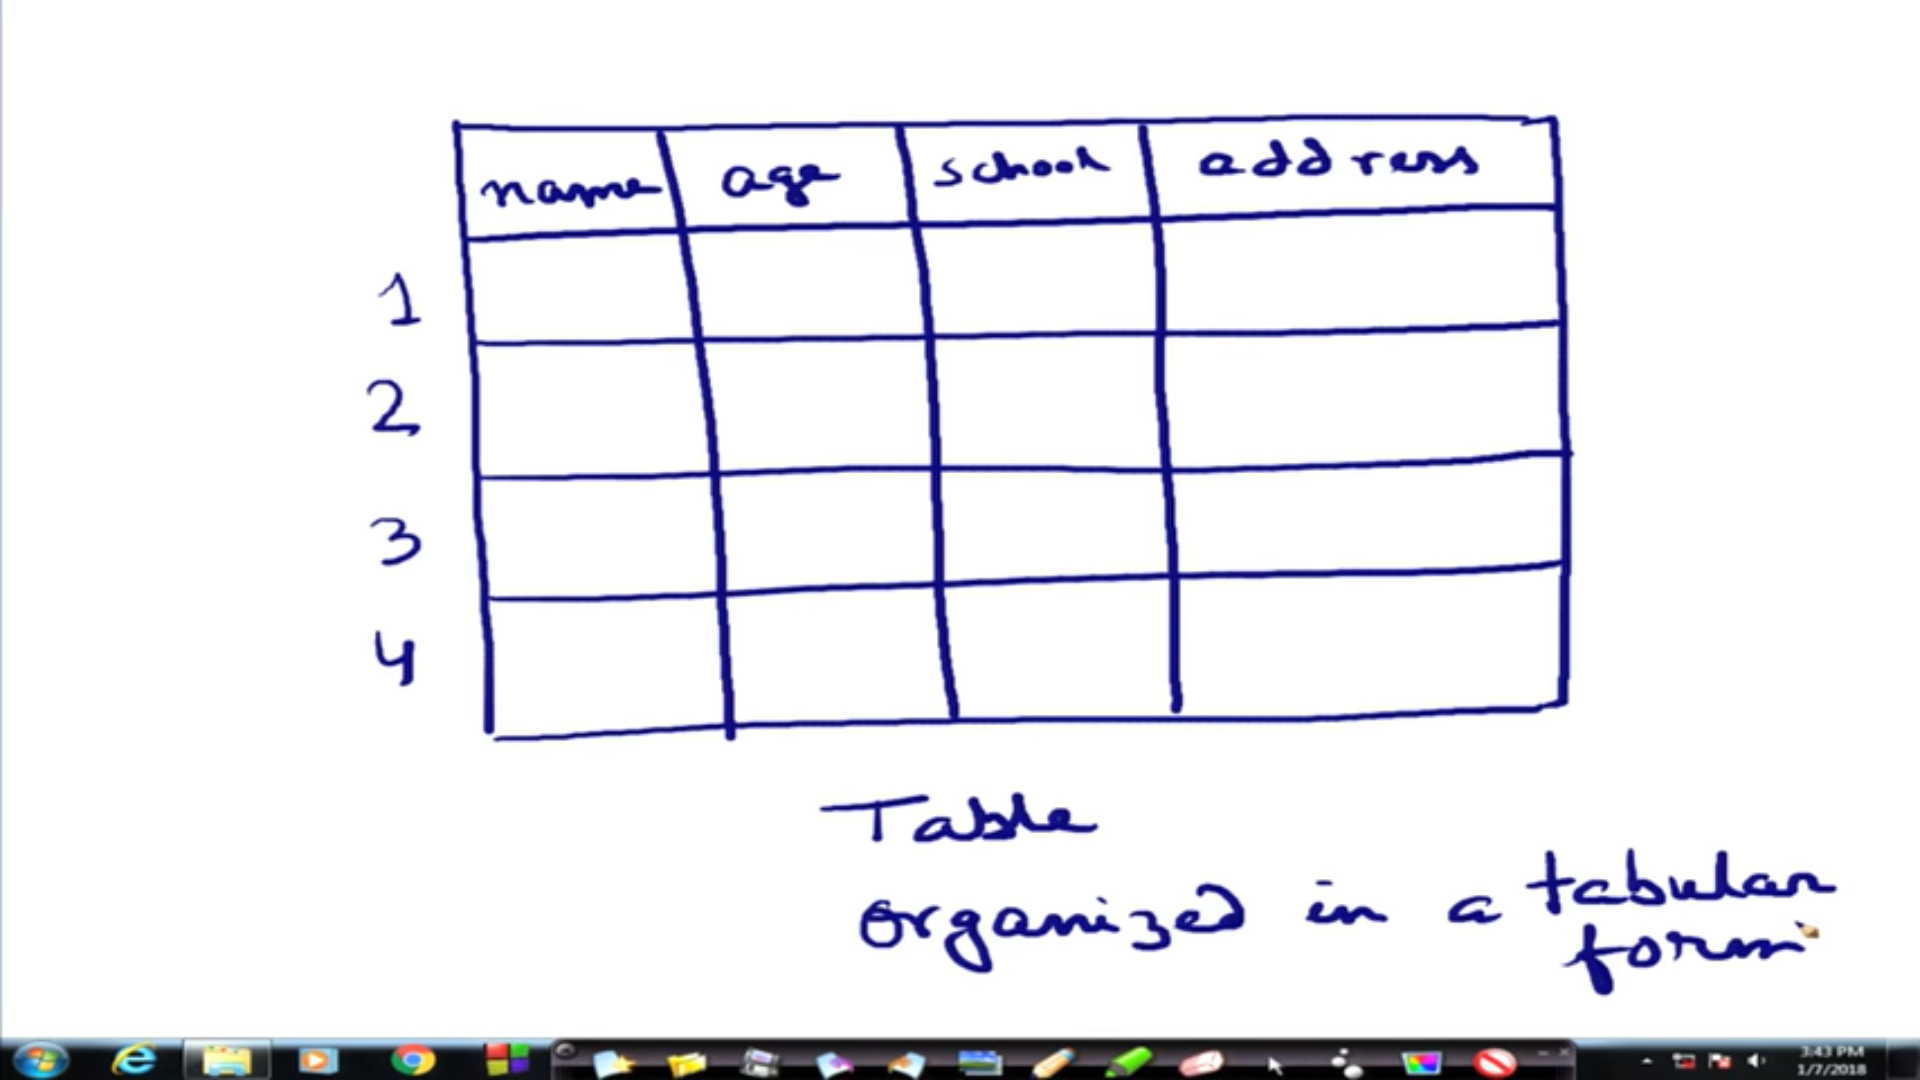 name age school address
1
2
3
4
Table
organized in a tabular
form
3:43 PM
1/7/2018